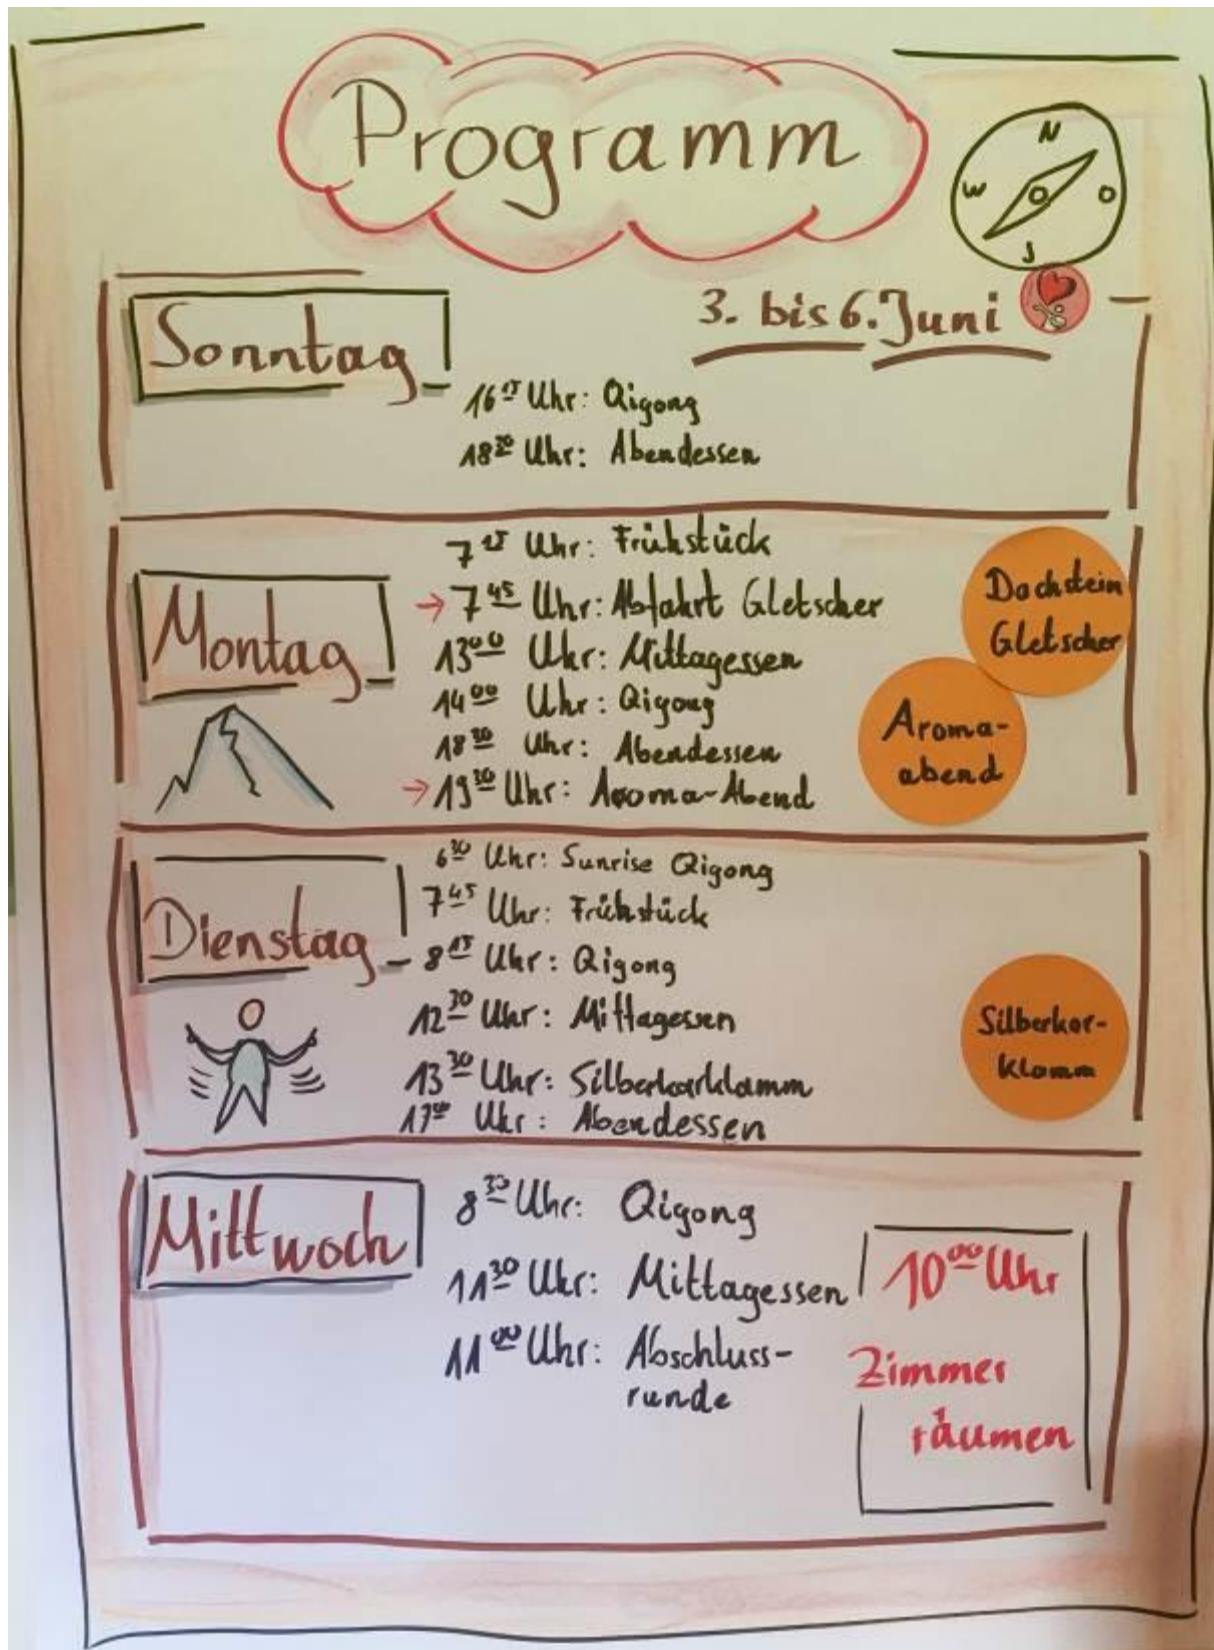 Programm
N
W O
S
3. bis 6. Juni
Sonntag
16 15 Uhr: Qigong
18 30 Uhr: Abendessen
Montag
7 15 Uhr: Frühstück
→ 7 45 Uhr: Abfahrt Gletscher
13 00 Uhr: Mittagessen
14 00 Uhr: Qigong
18 30 Uhr: Abendessen
→ 19 30 Uhr: Aroma-Abend
Dachstein
Gletscher
Aroma-
abend
Dienstag
6 30 Uhr: Sunrise Qigong
7 45 Uhr: Frühstück
8 15 Uhr: Qigong
12 30 Uhr: Mittagessen
13 30 Uhr: Silberkarklamm
17 00 Uhr: Abendessen
Silberkar-
klamm
Mittwoch
8 30 Uhr: Qigong
11 30 Uhr: Mittagessen
11 00 Uhr: Abschluss-
runde
10 00 Uhr
Zimmer
räumen